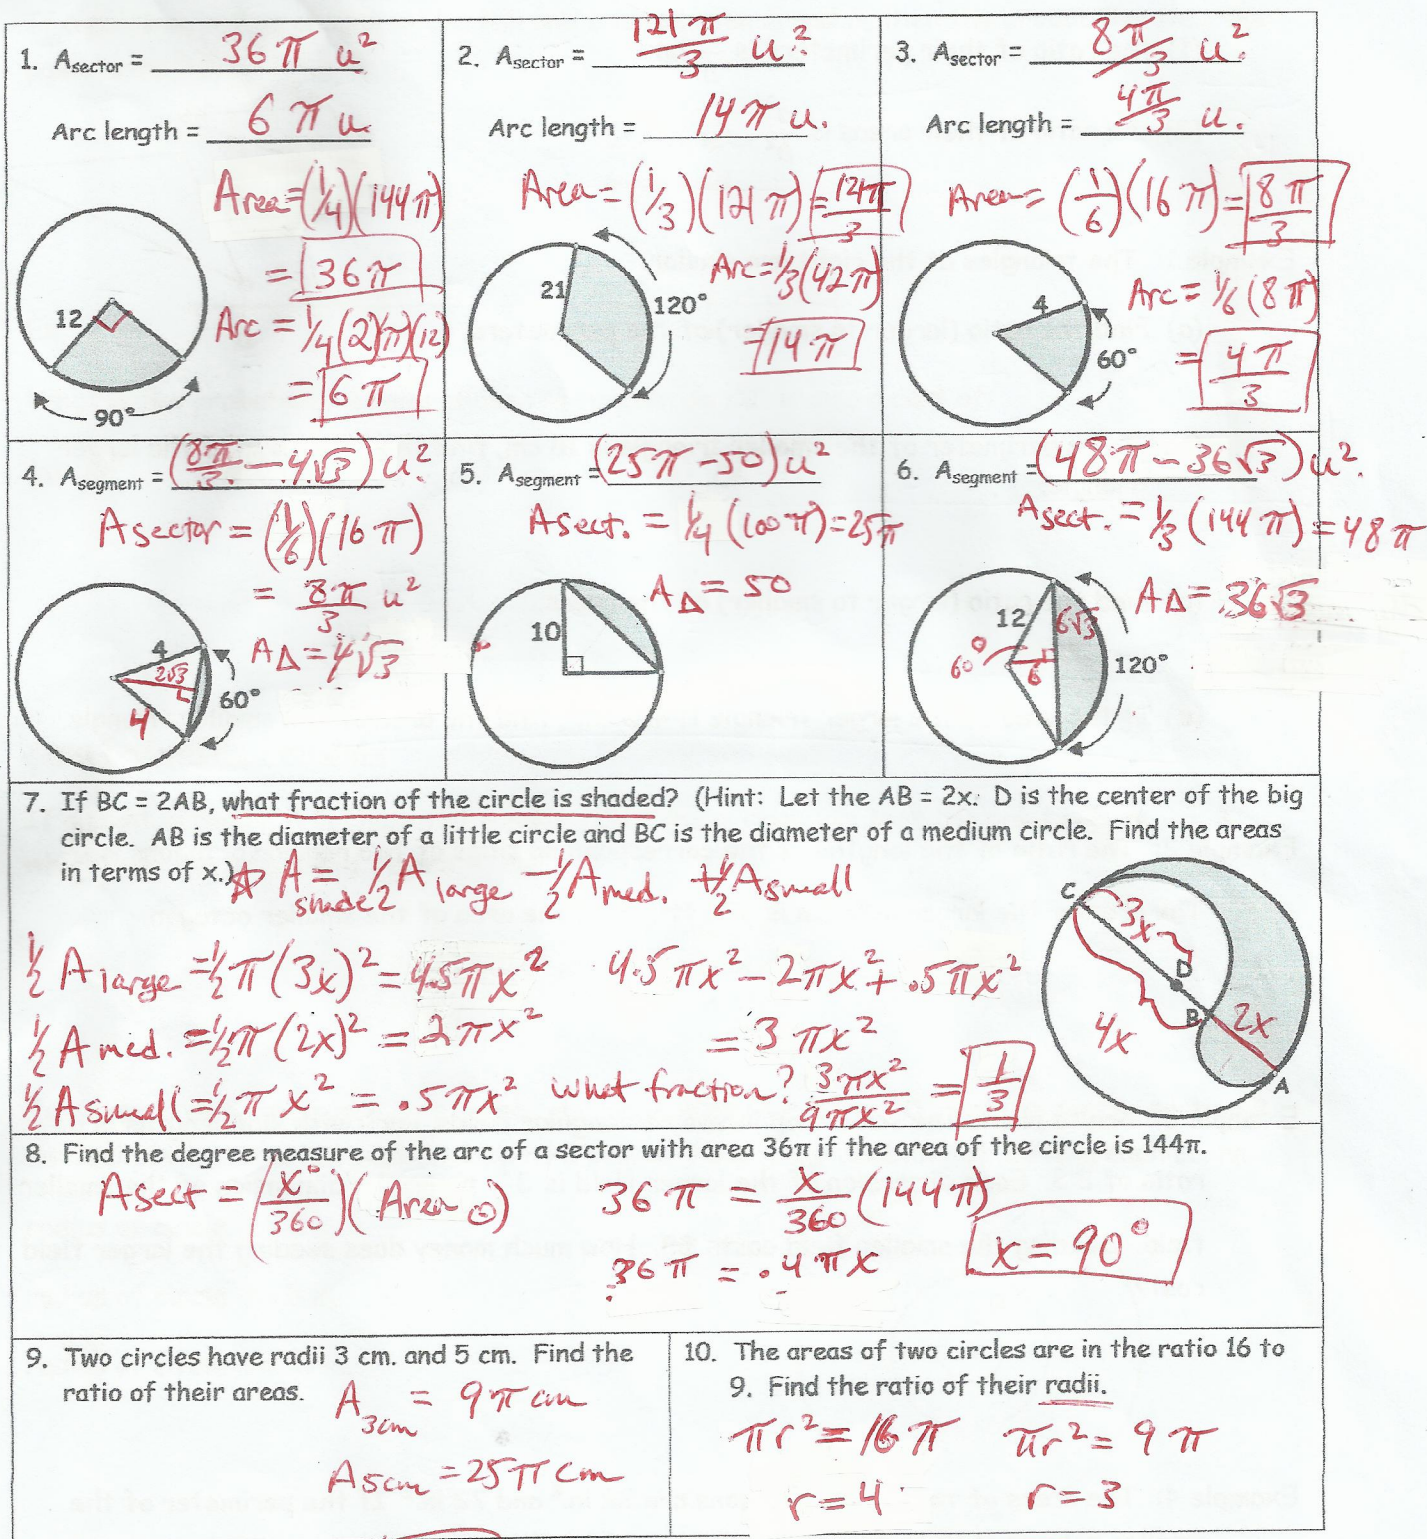 1. Asector = 36π u²
Arc length = 6π u.
Area=(1/4)(144π)
= 36π
Arc = 1/4(2)(π)(12)
= 6π
12
90°
2. Asector = 121π/3 u².
Arc length = 14π u.
Area = (1/3)(121π) = 121π/3
Arc = 1/3(42π)
= 14π
21
120°
3. Asector = 8π/3 u².
Arc length = 4π/3 u.
Area = (1/6)(16π) = 8π/3
Arc = 1/6(8π)
= 4π/3
4
60°
4. Asegment = (8π/3 - 4√3) u².
Asector = (1/6)(16π)
= 8π/3 u²
AΔ = 4√3
4
2√3
4
60°
5. Asegment = (25π-50)u²
Asect. = 1/4(100π)=25π
AΔ = 50
10
6. Asegment = (48π-36√3)u².
Asect. = 1/3(144π) = 48π
AΔ = 36√3
12
6√3
60°
6
120°
7. If BC = 2AB, what fraction of the circle is shaded? (Hint: Let the AB = 2x. D is the center of the big
circle. AB is the diameter of a little circle and BC is the diameter of a medium circle. Find the areas
in terms of x.)
A shade = 1/2 A large - 1/2 A med. + 1/2 A small
1/2 A large = 1/2 π(3x)² = 4.5πx²
4.5πx² - 2πx² + .5πx²
1/2 A med. = 1/2 π(2x)² = 2πx²
= 3πx²
1/2 A small = 1/2 πx² = .5πx²
what fraction? 3πx²/9πx² = 1/3
C
3x
D
B
2x
4x
A
8. Find the degree measure of the arc of a sector with area 36π if the area of the circle is 144π.
Asect = (x°/360)(Area ⊙)
36π = x/360 (144π)
36π = .4πx
x = 90°
9. Two circles have radii 3 cm. and 5 cm. Find the
ratio of their areas.
A3cm = 9π cm
A5cm = 25π cm
10. The areas of two circles are in the ratio 16 to
9. Find the ratio of their radii.
πr² = 16π
πr² = 9π
r = 4
r = 3